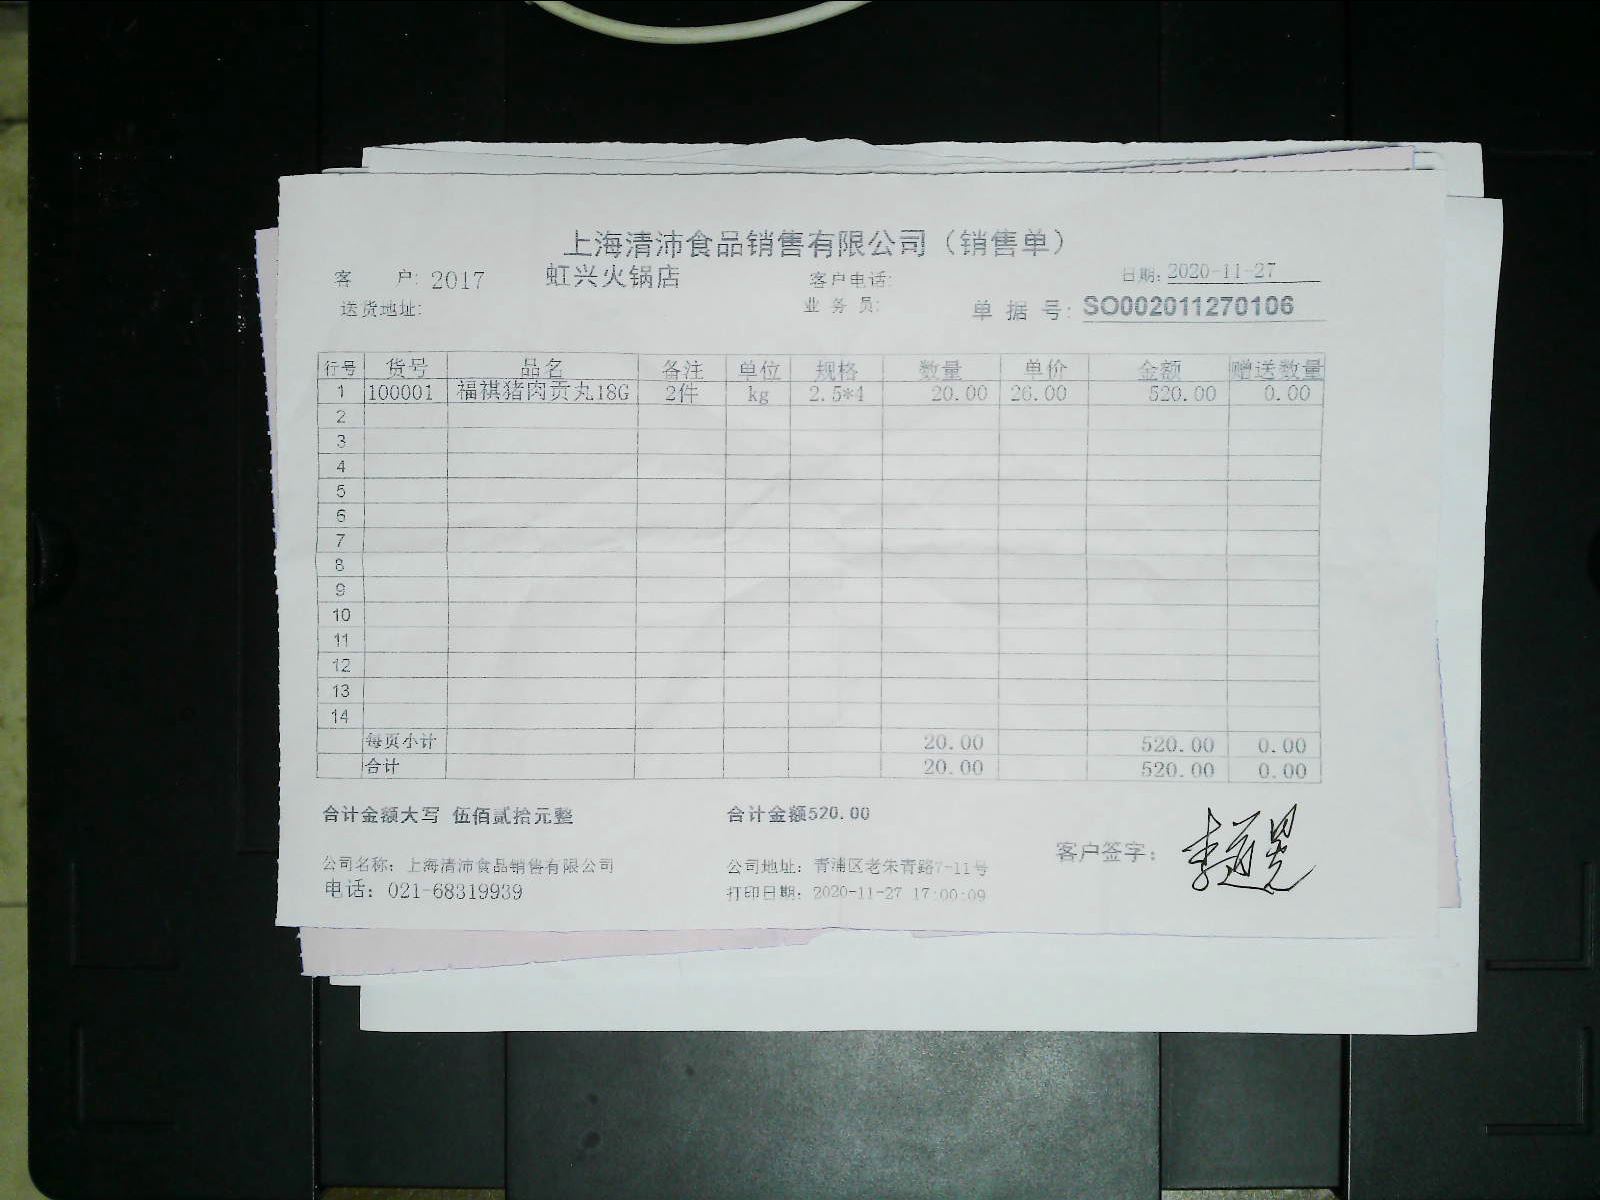 上海清沛食品销售有限公司（销售单）
客 户: 2017 虹兴火锅店 客户电话: 日期: 2020-11-27
送货地址: 业务员: 单据号: SO002011270106
行号 货号 品名 备注 单位 规格 数量 单价 金额 赠送数量
1 100001 福祺猪肉贡丸18G 2件 kg 2.5*4 20.00 26.00 520.00 0.00
2
3
4
5
6
7
8
9
10
11
12
13
14
每页小计 20.00 520.00 0.00
合计 20.00 520.00 0.00
合计金额大写 伍佰贰拾元整 合计金额520.00
公司名称: 上海清沛食品销售有限公司 公司地址: 青浦区老朱青路7-11号 客户签字:
电话: 021-68319939 打印日期: 2020-11-27 17:00:09